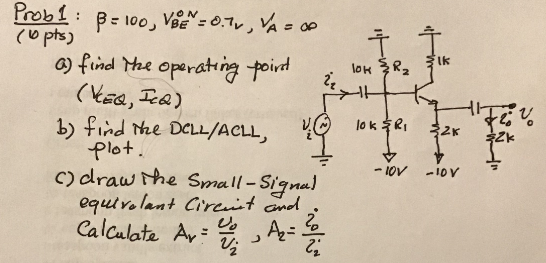 Prob 1 : β = 100, V_BE^ON = 0.7v, V_A = ∞
(10 pts)
a) find the operating point
(V_CEQ, I_CQ)
b) find the DCLL/ACLL,
plot.
c) draw the Small-Signal
equivalent Circuit and
Calculate Av = vo/vi , Ai = io/ii
10k R2
1k
ii
vi
10k R1
2k
io
vo
2k
-10V
-10V